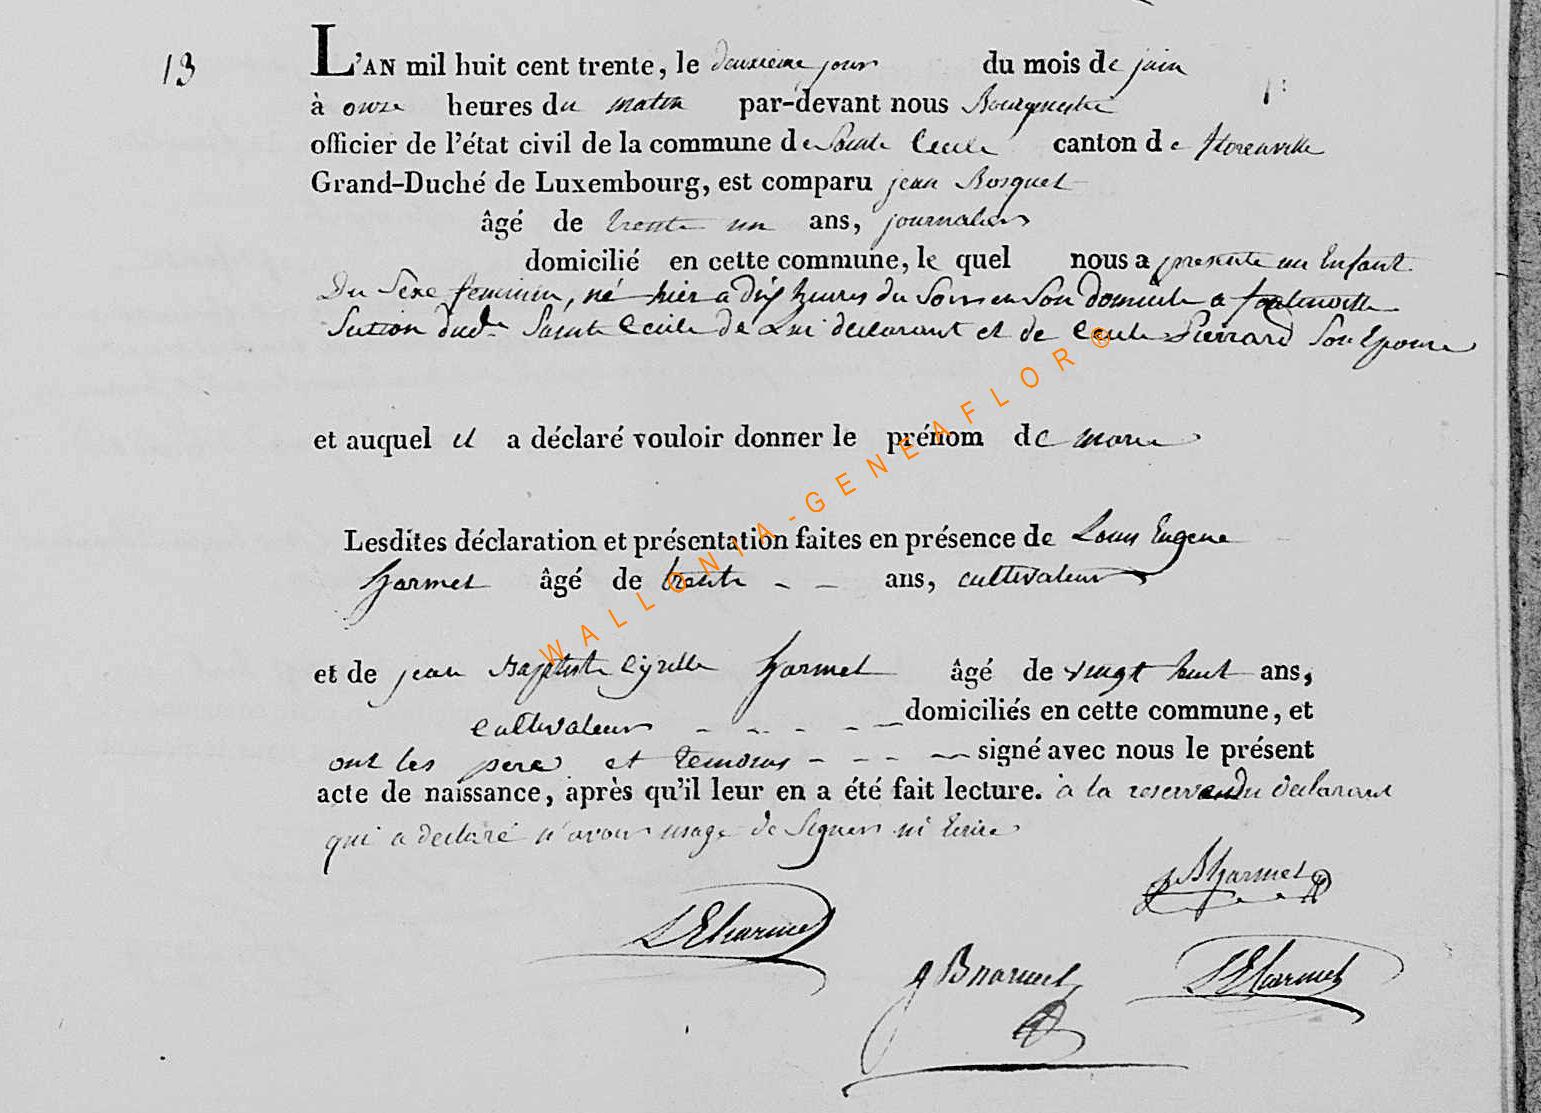 13
L'AN mil huit cent trente, le deuxieme jour du mois de juin
à onze heures du matin par-devant nous Bourgmestre
officier de l'état civil de la commune de Sainte Cecile canton de florenville
Grand-Duché de Luxembourg, est comparu jean Bosquet
âgé de trente un ans, journalier
domicilié en cette commune, le quel nous a presenté un Enfant
Du Sexe feminin, né hier a dix heures du Soir en Son domicile a
Section dud. Sainte Cecile de Lui declarant et de Cecile Pierrard Son Epouse
et auquel il a déclaré vouloir donner le prénom de marie
Lesdites déclaration et présentation faites en présence de Louis Eugene
harmel âgé de trente - - ans, cultivateur
et de jean Baptiste Cyrille harmel âgé de vingt huit ans,
cultivateur - - - - domiciliés en cette commune, et
ont les pere et temoins - - - - signé avec nous le présent
acte de naissance, après qu'il leur en a été fait lecture. à la reserve du declarant
qui a declaré n'avoir usage de Signer ni Ecrire
JBharmel
LEharmel
JBharmel
LEharmel
WALLONIA-GENEAFLOR®